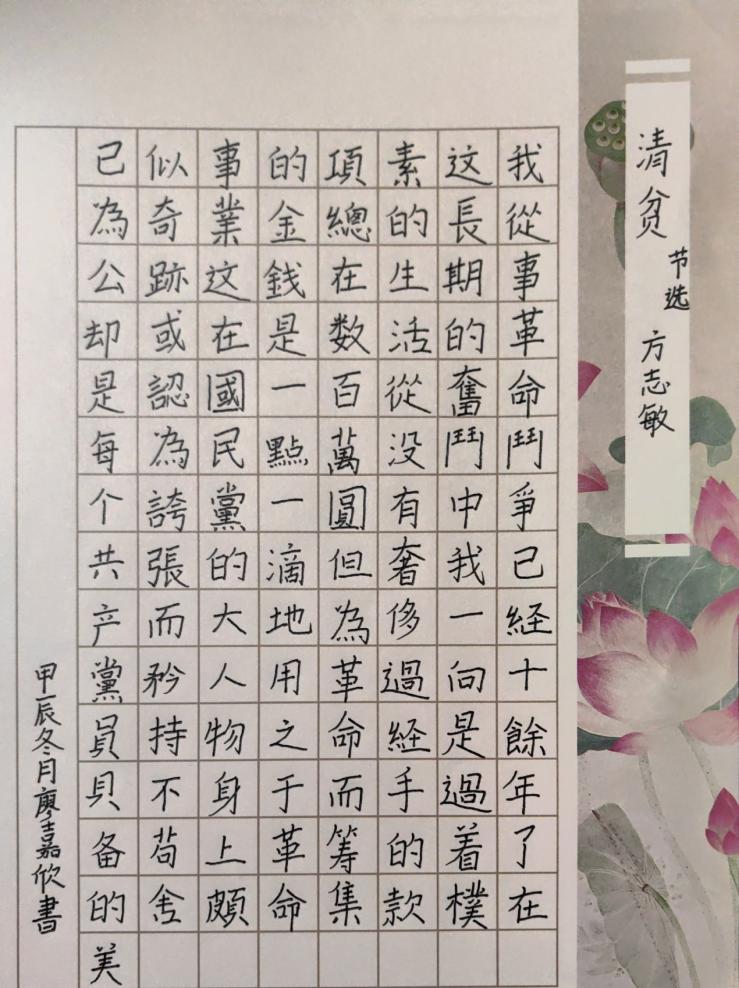 清贫
节选
方志敏
我從事革命鬥爭已経十餘年了在
这長期的奮鬥中我一向是過着樸
素的生活從没有奢侈過経手的款
項總在数百萬圓但為革命而筹集
的金錢是一點一滴地用之于革命
事業这在國民黨的大人物身上頗
似奇跡或認為誇張而矜持不苟舍
己為公却是每个共产黨員具备的美
甲辰冬月廖嘉欣書